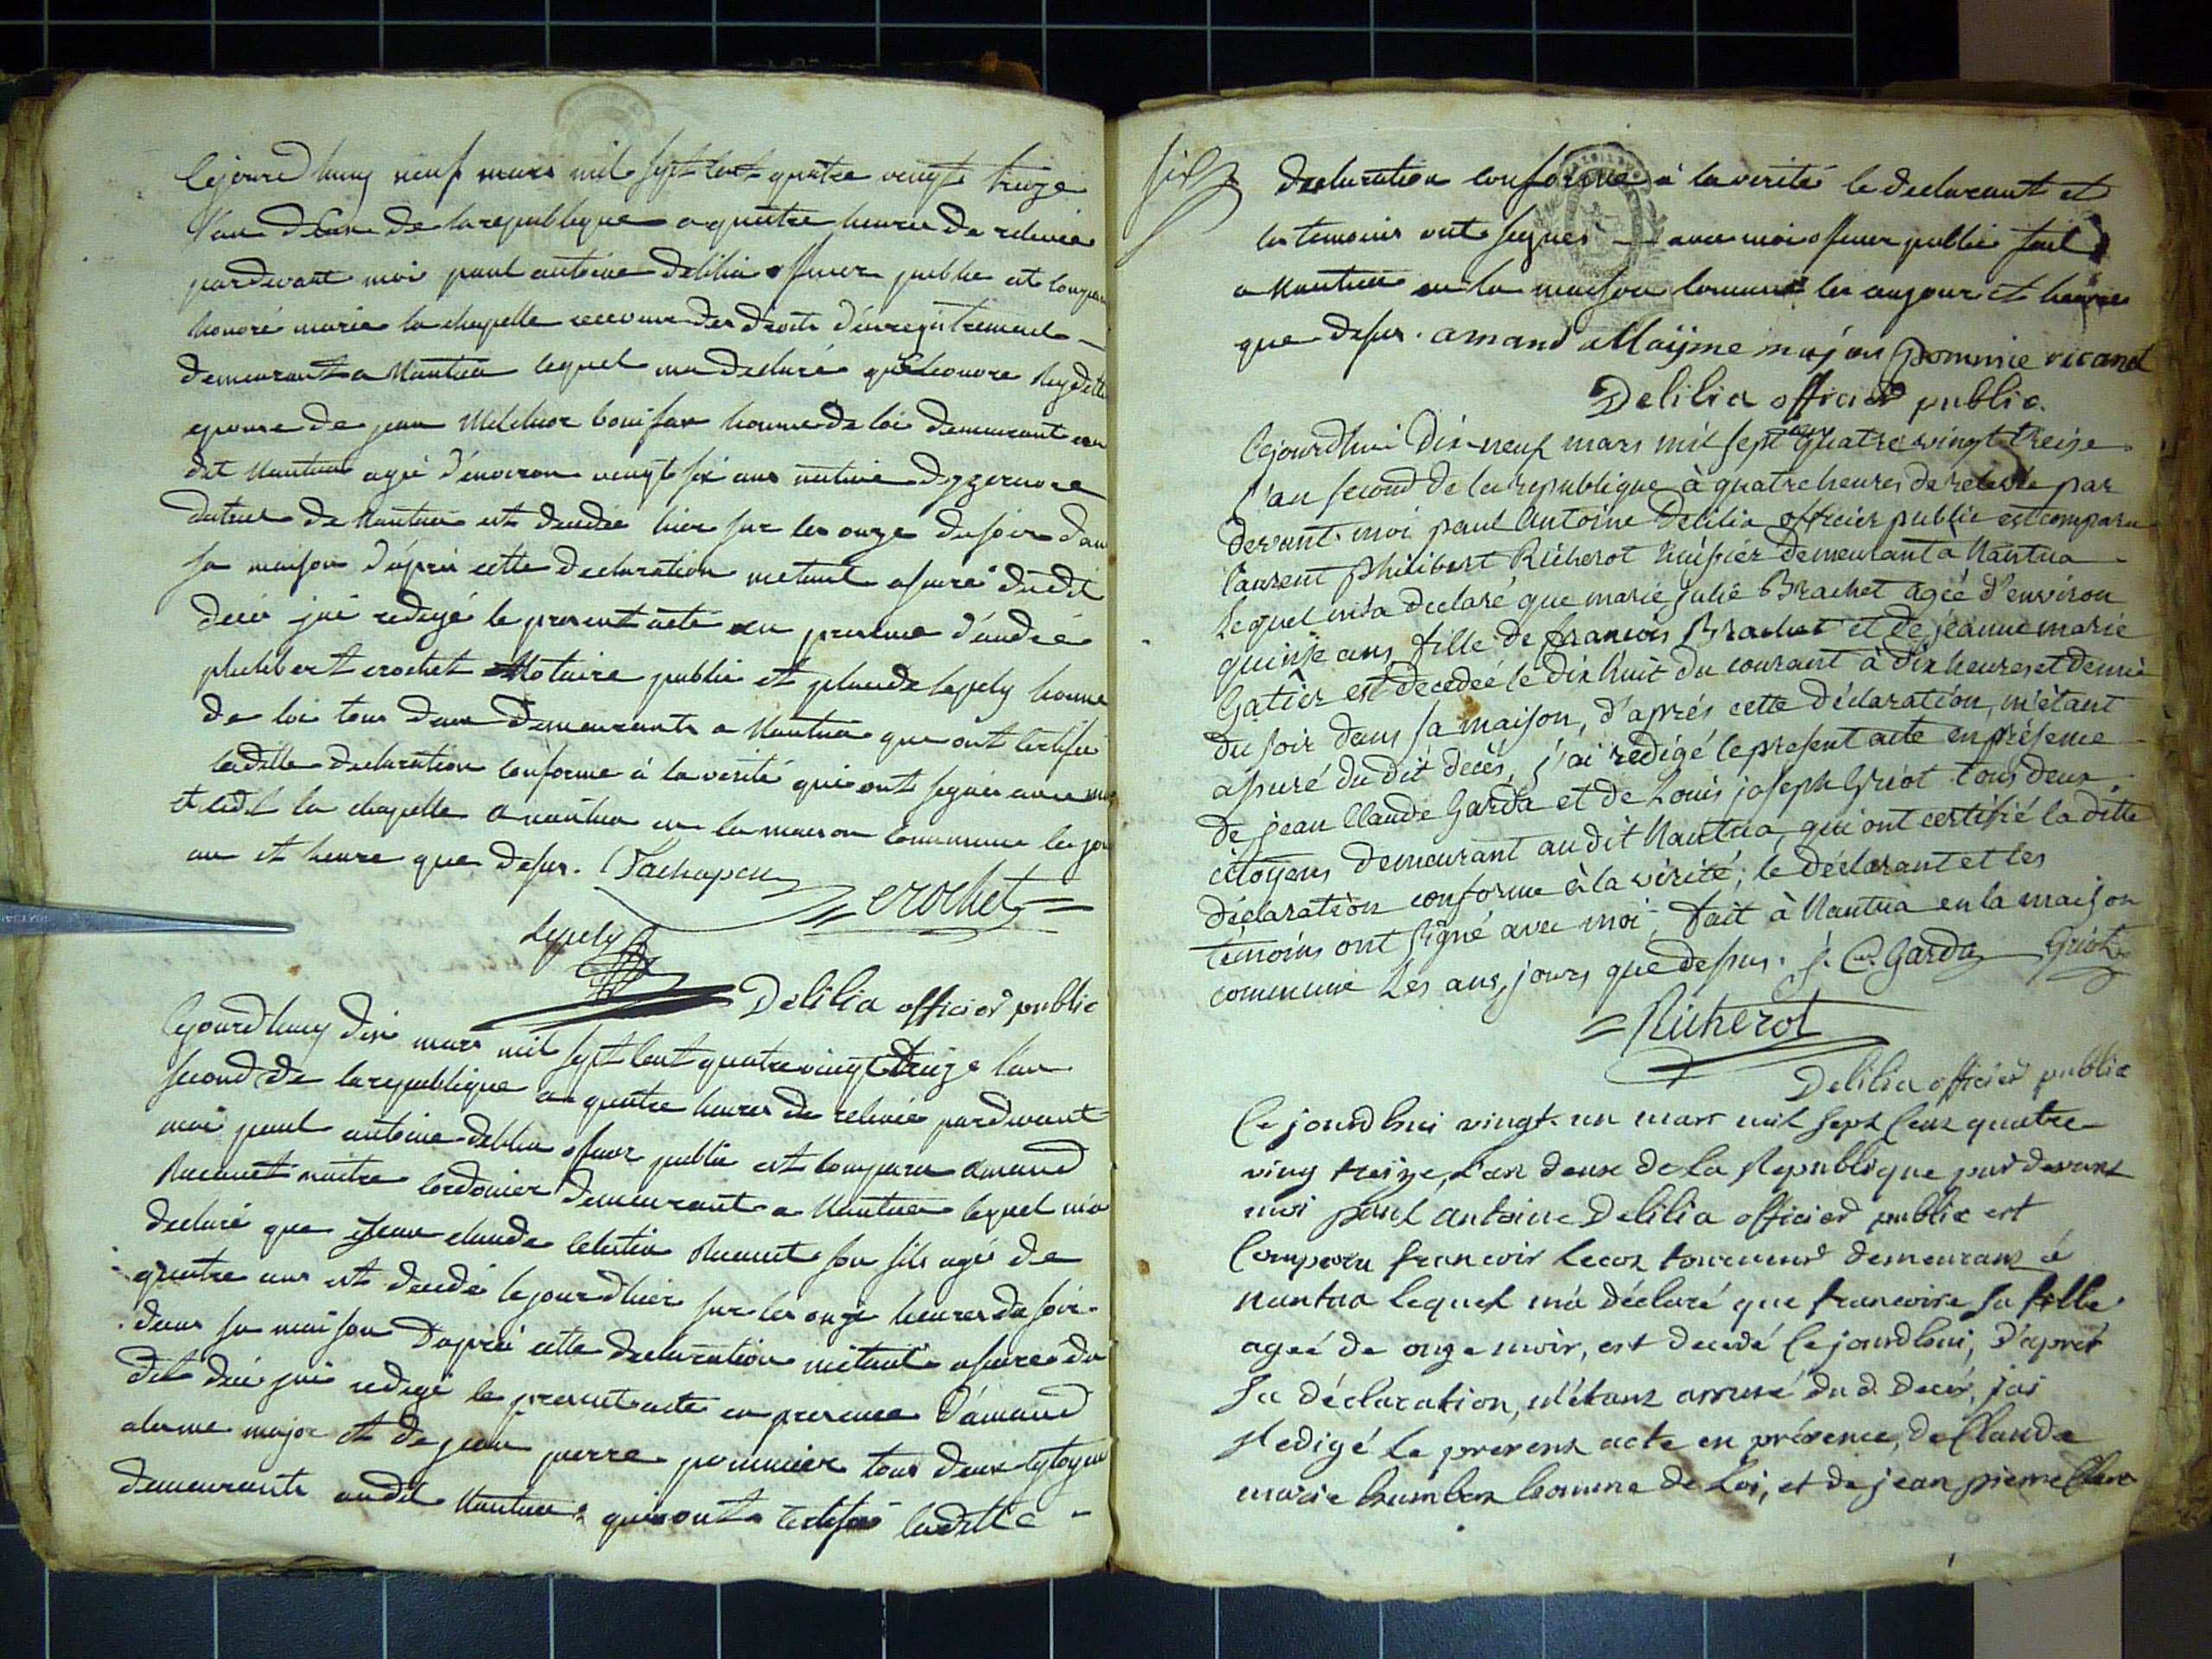 Cejourd huy neuf mars mil sept cent quatre vingt treize
l'an deux de la republique a quatre heures de relevée
pardevant moi paul antoine delilia officier public est comparu
honoré marie la chapelle receveur des droits d'enregistrement
demeurant a Nantua lequel ma declaré que leonore
epouse de jean Melchior bonifax homme de loi demeurant au
dit Nantua agé d'environ vingt six ans native
de Nantua est decedée hier sur les onze du soir dans
sa maison d'apres cette declaration metant assuré dudit
deces jai redigé le present acte en presence d'andré
philibert crochet Notaire public et claude lepely homme
de loi tous deux demeurants a Nantua qui ont certifié
ladite declaration conforme à la verité qui ont signés avec moi
et ledit la chapelle a nantua en la maison commune les jour
an et heure que dessus. crochet
Lepely
Delilia officier public
Cejourd huy dix mars mil sept cent quatre vingt treize l'an
second de la republique a quatre heures de relevée pardevant
moi paul antoine delilia officier public est comparu amand
maitre cordonier demeurant a Nantua lequel m'a
declaré que jean claude celestin son fils agé de
quatre ans est decedé le jour d'hier sur les onze heures du soir
dans sa maison d'apres cette declaration métant assuré du
dit deces jai redigé le present acte en presence d'amand
major et de jean pierre pommier tous deux cytoyens
demeurants audit Nantua qui ont certifié ladite
six
declaration conforme à la verité le declarant et
les temoins ont signés avec moi officier public fait
a Nantua en la maison commune les an jour et heure
que dessus. amand major pommie
Delilia officier public.
Cejourdhui Dix-neuf mars mil sept cent quatre vingt treize
l'an second de la republique à quatre heures de relevée par
devant moi paul Antoine Delilia officier public est comparu
laurent philibert Richerot huissier demeurant à Nantua
Lequel m'a declaré que marie julie Brachet agée d'environ
quinze ans fille de francois Brachet et de jeanne marie
Gatier est decedeé le dix huit du courant à dix heures et demie
du soir dans sa maison, d'aprés cette déclaration, m'étant
assuré du dit décès, j'ai redigé le present acte en présence
de jean Claude Garda et de Louis joseph Griot tous deux
citoyens demeurant au dit Nantua, qui ont certifié la ditte
déclaration conforme à la vérité; le déclarant et les
témoins ont signé avec moi, fait à Nantua en la maison
commune Les ans, jours que dessus. J. C. Garda Griot
Richerot
Delilia officier public
Ce jourd'hui vingt-un mars mil sept cent quatre
ving treize, l'an deux de la Republique par devant
moi paul antoine Delilia officier public est
Comparu francois Lecoz tourneur demeurant à
Nantua lequel m'à déclaré que francoise sa fille
ageé de onze mois, est decedé cejourd'hui, d'aprés
sa déclaration, m'étant assuré du d. decés, jai
Redigé le present acte en présence, de Claude
marie humbert homme de Loi, et de jean pierre